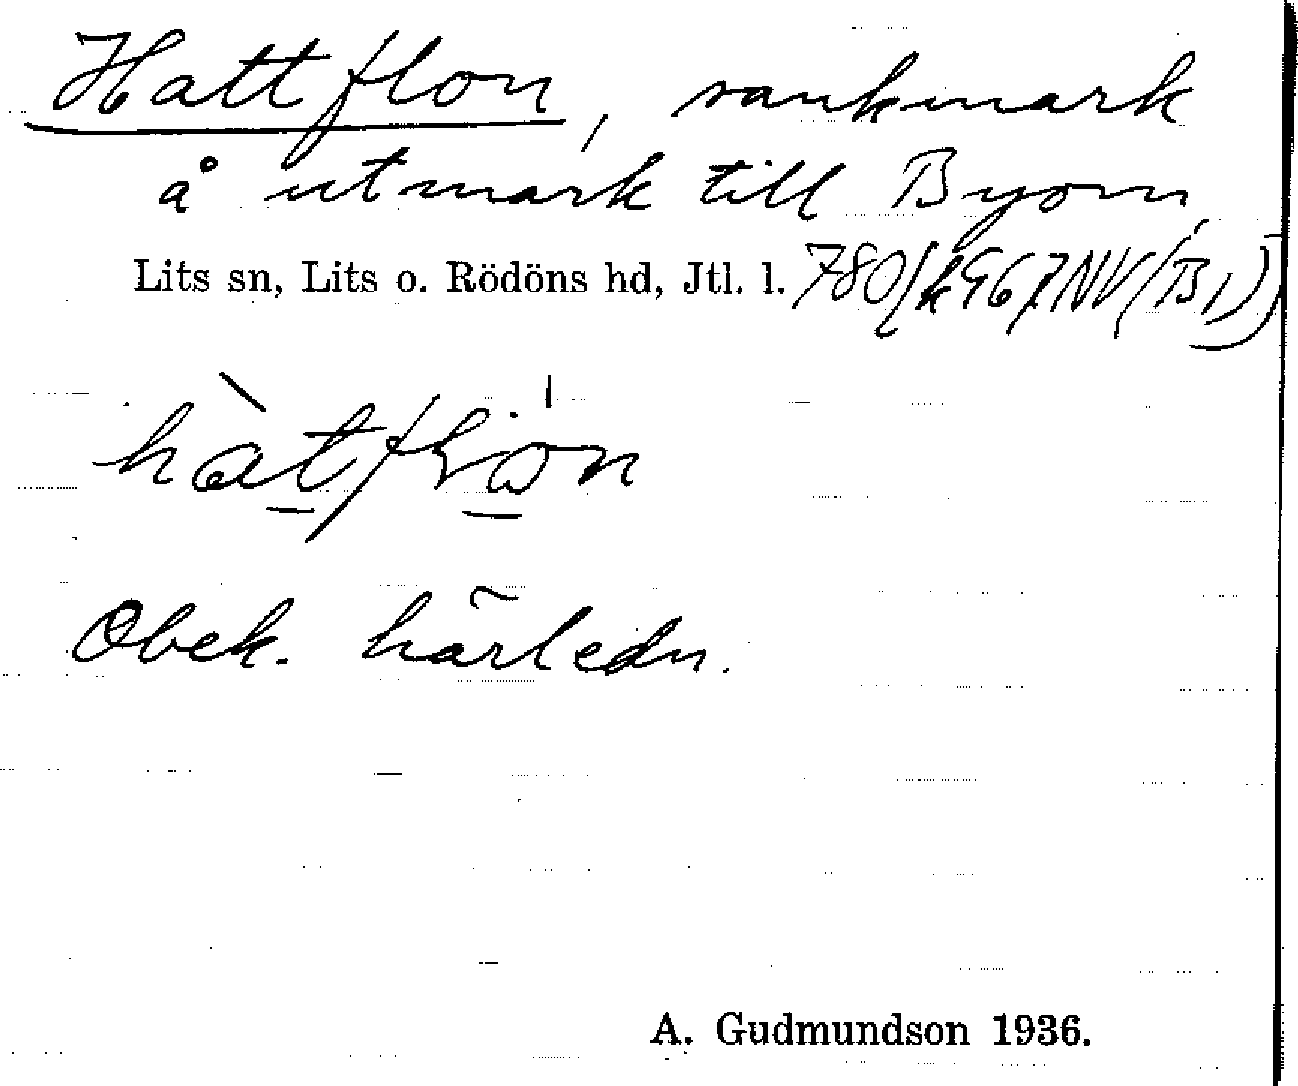 Hattflon, sankmark
å utmark till Byom,
Lits sn, Lits o. Rödöns hd, Jtl. l.
hàtflon
Obek. härledn.
A. Gudmundson 1936.